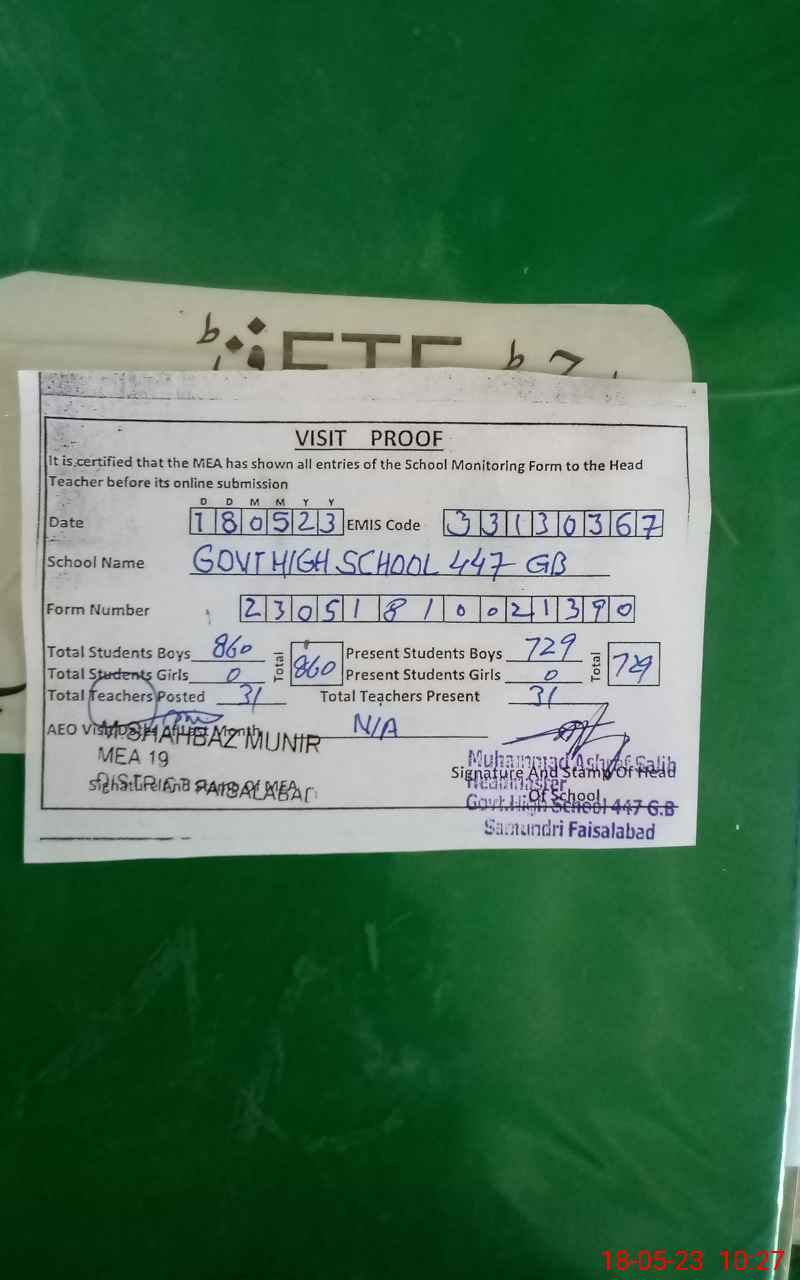 VISIT PROOF
It is certified that the MEA has shown all entries of the School Monitoring Form to the Head
Teacher before its online submission
D D M M Y Y
Date 180523 EMIS Code 33130367
School Name GOVT HIGH SCHOOL 447 GB
Form Number 23051810021390
Total Students Boys 860 Total 860 Present Students Boys 729 Total 729
Total Students Girls 0 Present Students Girls 0
Total Teachers Posted 31 Total Teachers Present 31
AEO Month N/A
SHAHBAZ MUNIR
MEA 19
DISTRICT FAISALABAD
Signature And Stamp Of MEA
Muhammad Ashraf Salih
Signature And Stamp Of Head
Headmaster
Of School
Govt.High School 447 G.B
Samundri Faisalabad
18-05-23 10:27